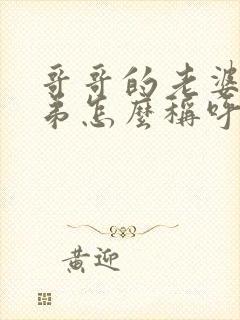 哥哥的老婆
弟怎麼稱呼
黃迎